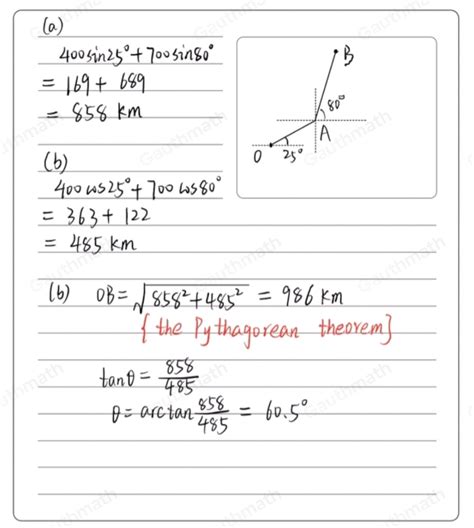 (a)
400sin25°+700sin80°
= 169+ 689
= 858 km
B
80°
A
O 25°
(b)
400cos25°+700cos80°
= 363+122
= 485 km
(b) OB=√858²+485² = 986 km
{the Pythagorean theorem}
tanθ= 858/485
θ= arctan 858/485 = 60.5°
Gauthmath